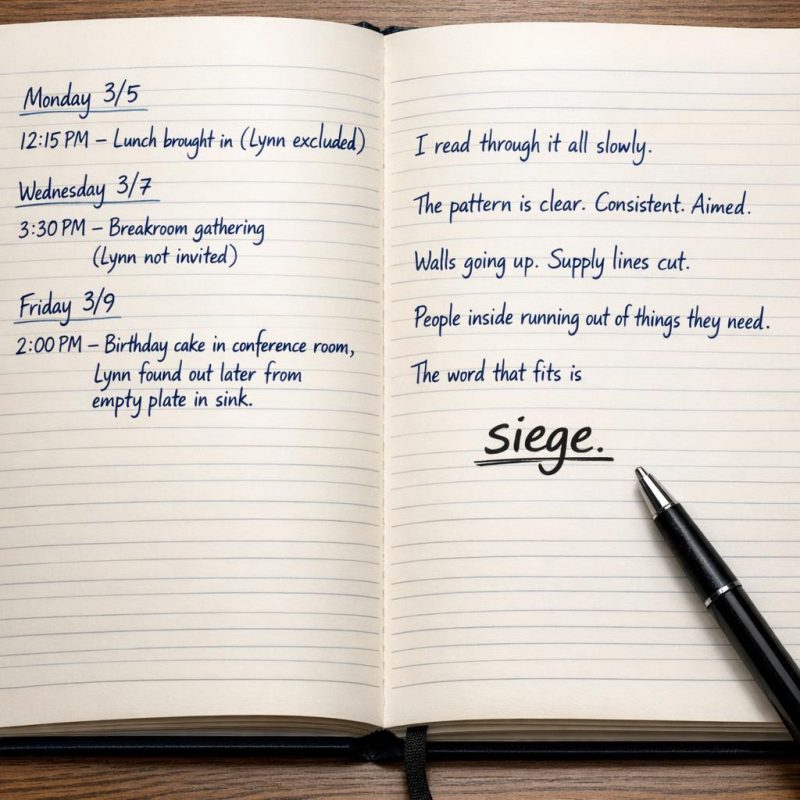 Monday 3/5
12:15 PM – Lunch brought in (Lynn excluded)
Wednesday 3/7
3:30 PM – Breakroom gathering
(Lynn not invited)
Friday 3/9
2:00 PM – Birthday cake in conference room,
Lynn found out later from
empty plate in sink.
I read through it all slowly.
The pattern is clear. Consistent. Aimed.
Walls going up. Supply lines cut.
People inside running out of things they need.
The word that fits is
siege.